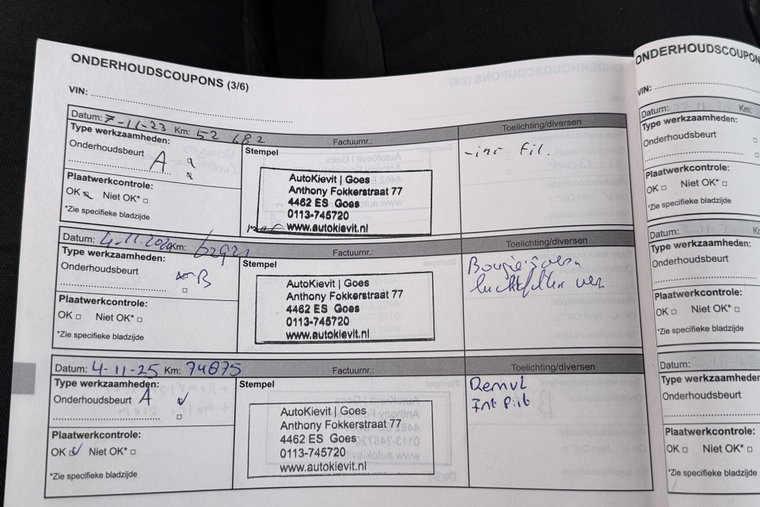 ONDERHOUDSCOUPONS (3/6)
VIN:
Datum: 7-11-23 Km: 52 682 Factuurnr.: Toelichting/diversen
Type werkzaamheden:
Onderhoudsbeurt A
Plaatwerkcontrole:
OK Niet OK*
*Zie specifieke bladzijde
Stempel
AutoKievit | Goes
Anthony Fokkerstraat 77
4462 ES Goes
0113-745720
www.autokievit.nl
fil.
Datum: 4-11-2024 Km: Factuurnr.: Toelichting/diversen
Type werkzaamheden:
Onderhoudsbeurt B
Plaatwerkcontrole:
OK Niet OK*
*Zie specifieke bladzijde
Stempel
AutoKievit | Goes
Anthony Fokkerstraat 77
4462 ES Goes
0113-745720
www.autokievit.nl
Bougie's ver.
luchtfilter ver
Datum: 4-11-25 Km: 74875 Factuurnr.: Toelichting/diversen
Type werkzaamheden:
Onderhoudsbeurt A
Plaatwerkcontrole:
OK Niet OK*
*Zie specifieke bladzijde
Stempel
AutoKievit | Goes
Anthony Fokkerstraat 77
4462 ES Goes
0113-745720
www.autokievit.nl
Remvl
Int
ONDERHOUDSCOUPON
VIN:
Datum: Km:
Type werkzaamheden:
Onderhoudsbeurt
Plaatwerkcontrole:
OK Niet OK*
*Zie specifieke bladzijde
Datum:
Type werkzaamheden:
Onderhoudsbeurt
Plaatwerkcontrole:
OK Niet OK*
*Zie specifieke bladzijde
Datum:
Type werkzaamheden:
Onderhoudsbeurt
Plaatwerkcontrole:
OK Niet OK*
*Zie specifieke bladzijde